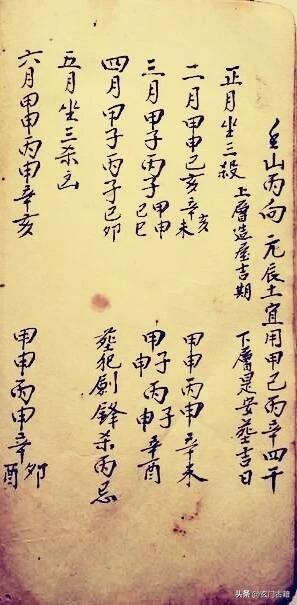 壬山丙向 元辰土宜用甲己丙辛四干
上層造屋吉期 下層是安葬吉日
正月坐三殺
二月甲申己亥辛亥未 甲申丙申辛未
三月甲子丙子甲申己巳 甲子丙子甲申辛酉
四月甲子丙子己卯 葬犯劍鋒杀丙忌
五月坐三杀凶
六月甲申丙申辛亥 甲申丙申辛卯酉
头条 @玄门古籍